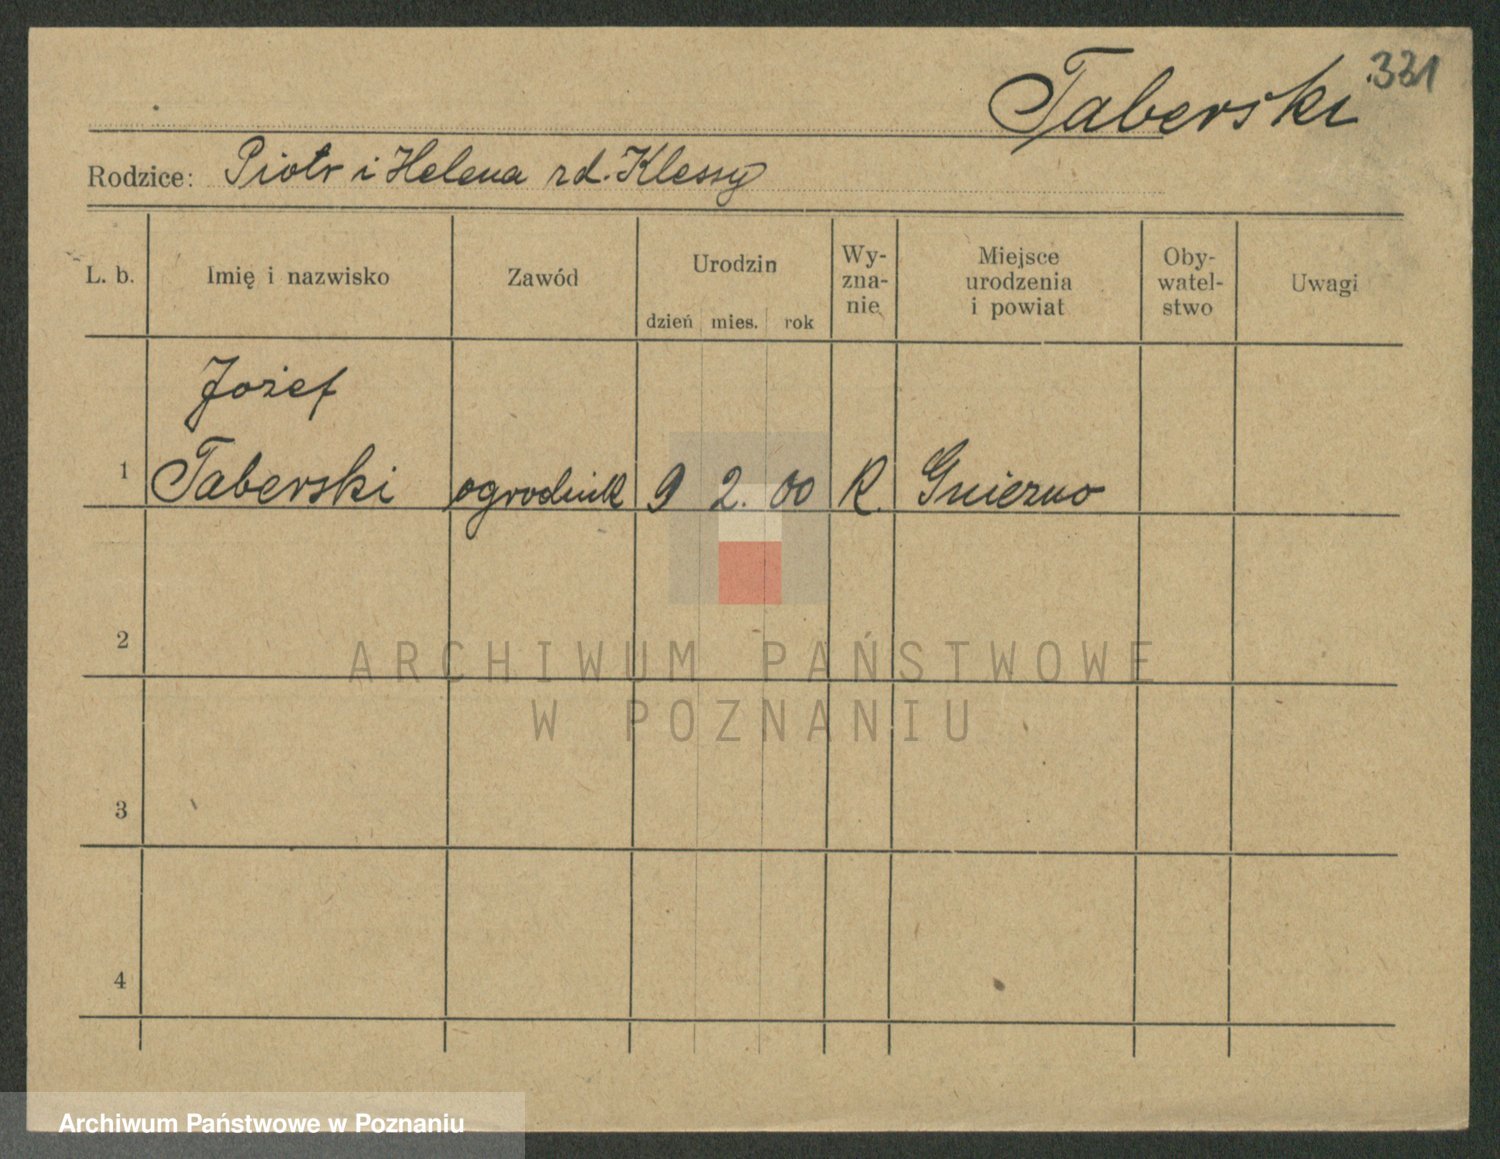 Taberski 331
Rodzice: Piotr i Helena rd. Klessy
L. b. Imię i nazwisko Zawód Urodzin dzień mies. rok Wy-zna-nie Miejsce urodzenia i powiat Oby-watel-stwo Uwagi
Jożef
1 Taberski ogrodnik 9 2. 00 R. Gniezno
2
ARCHIWUM PAŃSTWOWE
W POZNANIU
3
4
Archiwum Państwowe w Poznaniu